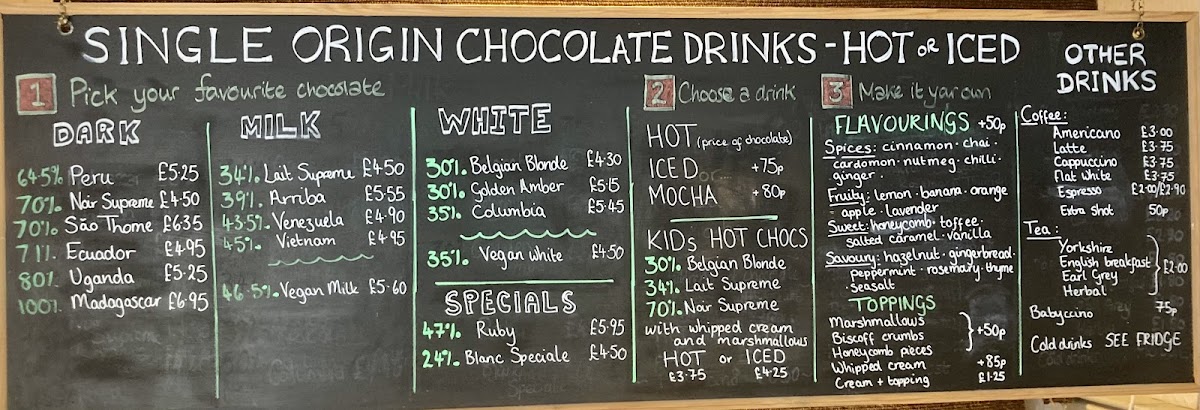 SINGLE ORIGIN CHOCOLATE DRINKS - HOT or ICED
1 Pick your favourite chocolate
DARK
64.5% Peru £5.25
70% Noir Supreme £4.50
70% São Thome £6.35
71% Ecuador £4.95
80% Uganda £5.25
100% Madagascar £6.95
MILK
34% Lait Supreme £4.50
39% Arriba £5.55
43.5% Venezuela £4.90
45% Vietnam £4.95
46.5% Vegan Milk £5.60
WHITE
30% Belgian Blonde £4.30
30% Golden Amber £5.15
35% Columbia £5.45
35% Vegan White £4.50
SPECIALS
47% Ruby £5.95
24% Blanc Speciale £4.50
2 Choose a drink
HOT (price of chocolate)
ICED +75p
MOCHA +80p
KIDS HOT CHOCS
30% Belgian Blonde
34% Lait Supreme
70% Noir Supreme
with whipped cream
and marshmallows
HOT or ICED
£3.75 £4.25
3 Make it your own
FLAVOURINGS +50p
Spices: cinnamon · chai ·
cardomon · nutmeg · chilli ·
ginger ·
Fruity: lemon · banana · orange
· apple · lavender
Sweet: honeycomb · toffee ·
salted caramel · vanilla
Savoury: hazelnut · gingerbread ·
peppermint · rosemary · thyme
· seasalt
TOPPINGS
Marshmallows
Biscoff crumbs +50p
Honeycomb pieces
Whipped cream +85p
Cream + topping £1.25
OTHER
DRINKS
Coffee:
Americano £3.00
Latte £3.75
Cappuccino £3.75
Flat White £3.75
Espresso £2.00/£2.90
Extra Shot 50p
Tea:
Yorkshire
English breakfast
Earl Grey £2.00
Herbal
Babyccino 75p
Cold drinks SEE FRIDGE